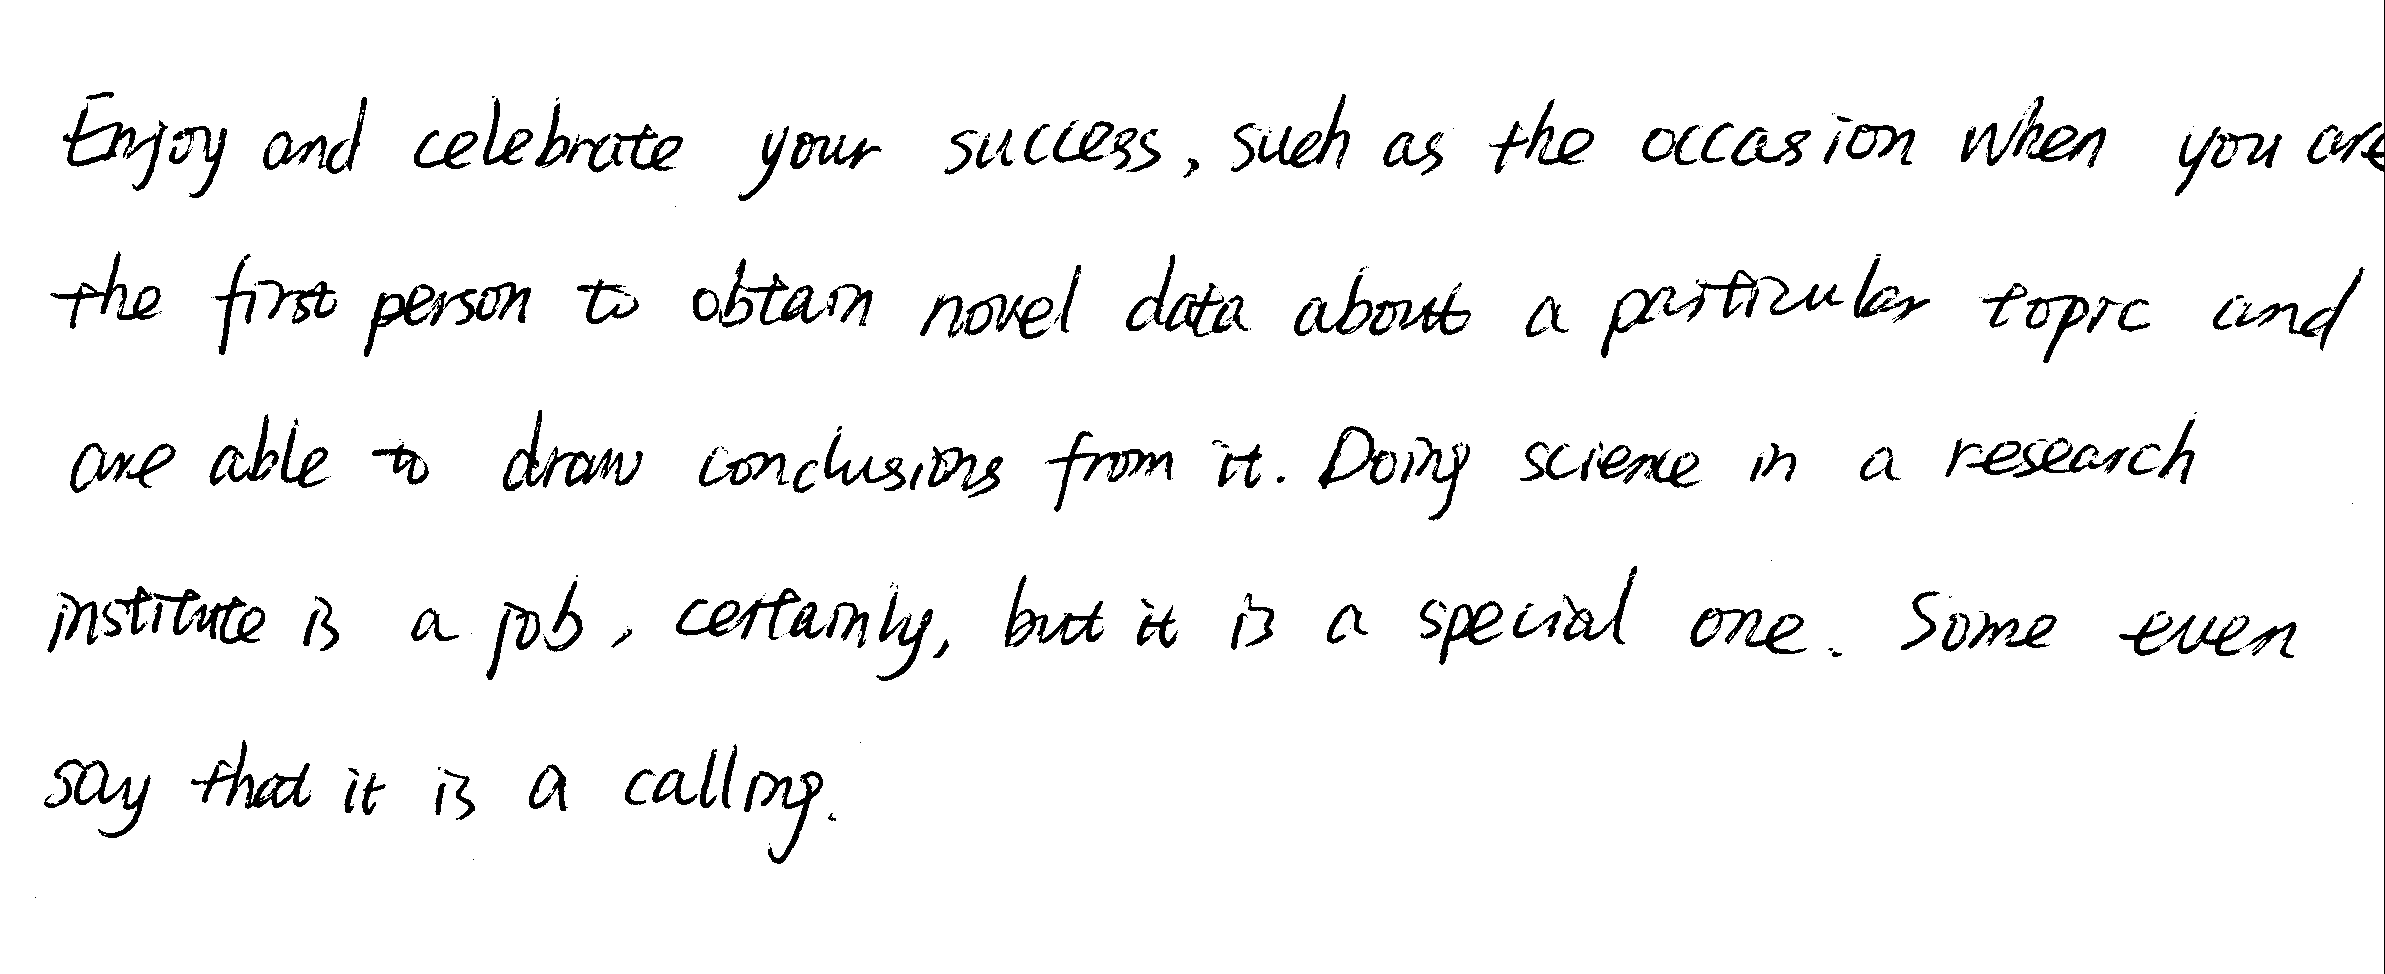 Enjoy and celebrate your success, such as the occasion when you are
the first person to obtain novel data about a particular topic and
are able to draw conclusions from it. Doing science in a research
institute is a job, certainly, but it is a special one. Some even
say that it is a calling.